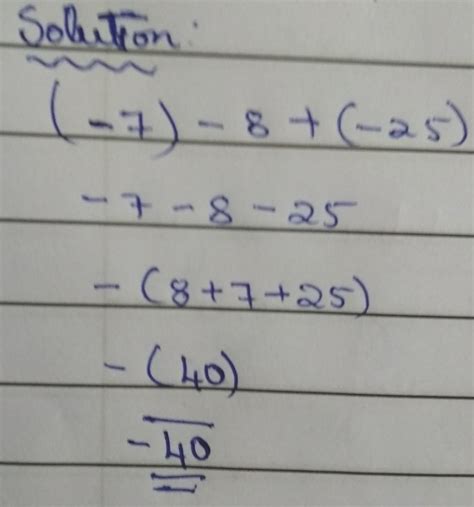 Solution:
(-7) - 8 + (-25)
-7 - 8 - 25
-(8+7+25)
-(40)
-40